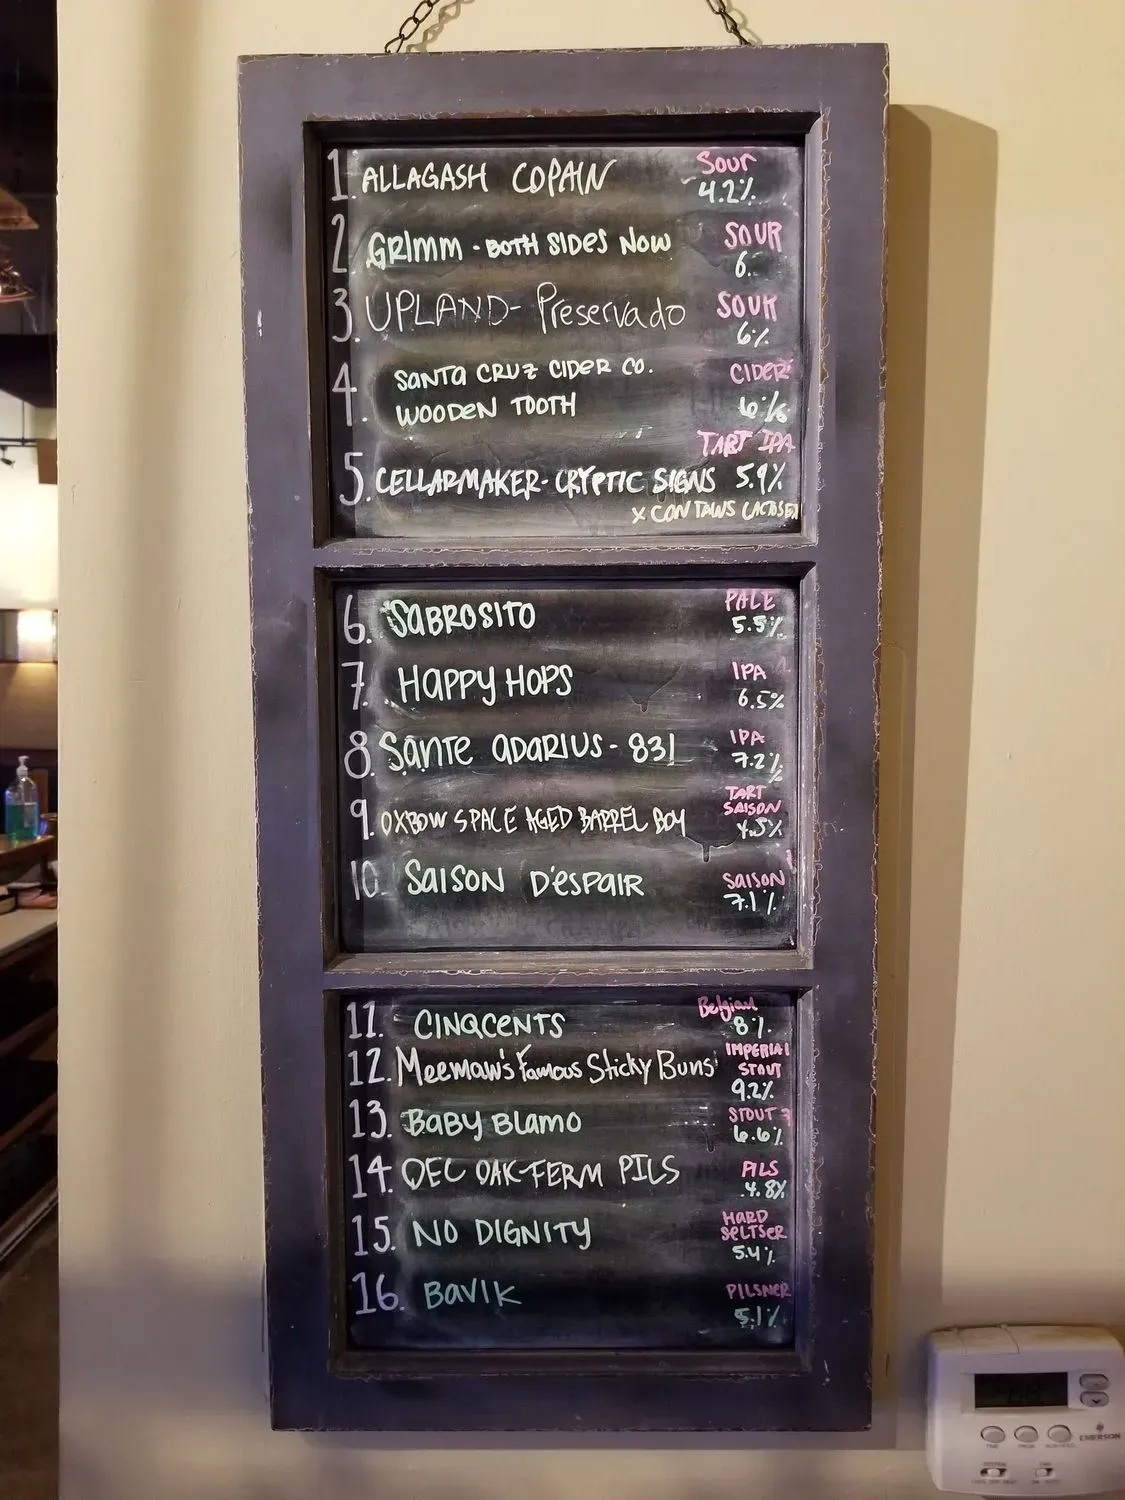 1. ALLAGASH COPAIN Sour
4.2%
2. GRIMM - BOTH SIDES NOW SOUR
6.
3. UPLAND - Preservado SOUR
6%
4. SANTA CRUZ CIDER CO. CIDER
WOODEN TOOTH 6%
TART IPA
5. CELLARMAKER - CRYPTIC SIGNS 5.9%
x CONTAINS LACTOSE
6. SABROSITO PALE
5.5%
7. HAPPY HOPS IPA
6.5%
8. SANTE ADARIUS - 831 IPA
7.2%
TART
SAISON
9. OXBOW SPACE AGED BARREL BOY 4.5%
10. SAISON D'ESPAIR SAISON
7.1%
11. CINQCENTS Belgian
8%
12. Meemaw's Famous Sticky Buns IMPERIAL
STOUT
9.2%
13. BABY BLAMO STOUT
6.6%
14. OEC OAK-FERM PILS PILS
4.8%
15. NO DIGNITY HARD
SELTSER
5.4%
16. BAVIK PILSNER
5.1%
EMERSON